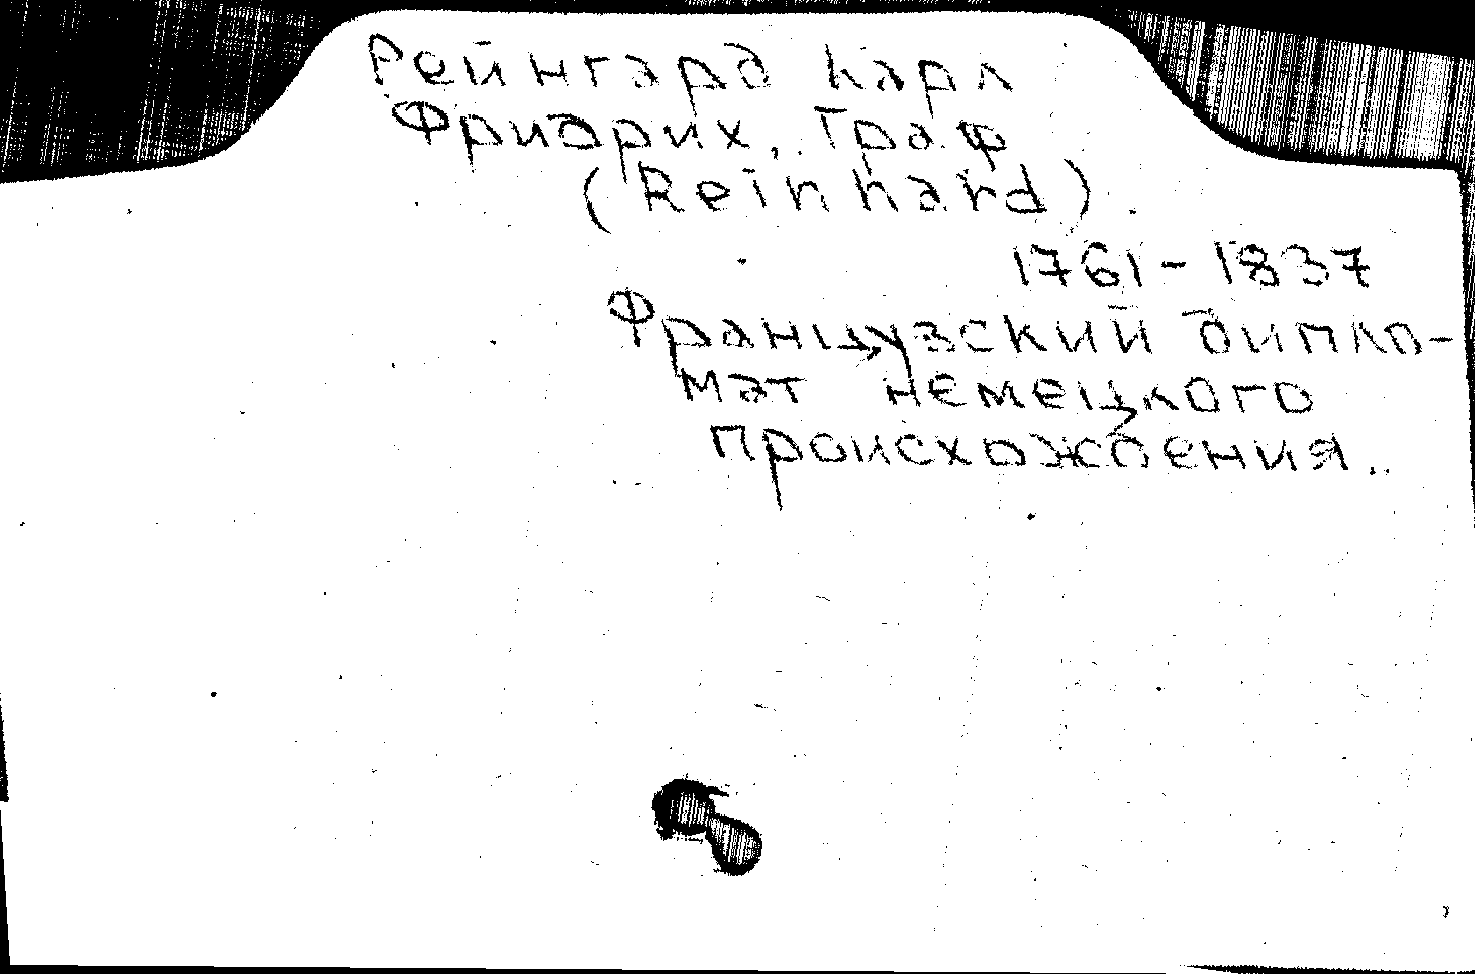 Рейнгард Карл
Фридрих, Граф
(Reinhard)
1761-1837
Французский дипло-
мат немецкого
происхождения.